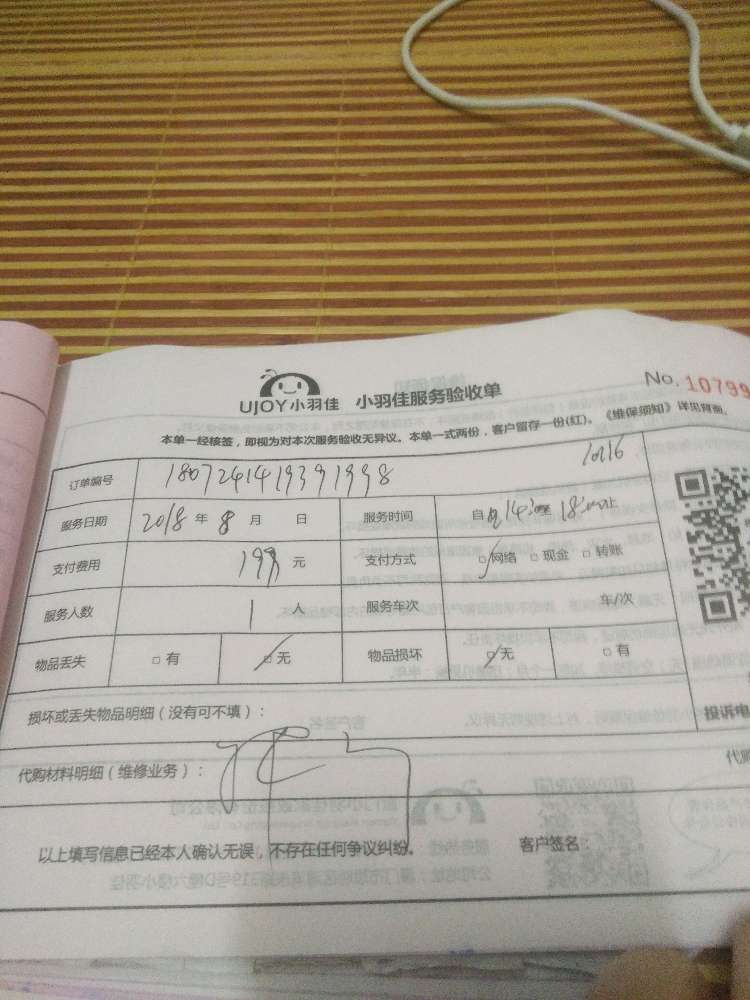 UJOY小羽佳 小羽佳服务验收单
No. 10799
本单一经核签，即视为对本次服务验收无异议。本单一式两份，客户留存一份(红)。《维保须知》详见背面。
1016
订单编号 1807241419391998
服务日期 2018 年 8 月 日 服务时间 自 14:00至 18:00止
支付费用 199 元 支付方式 □网络 □现金 □转账
服务人数 1 人 服务车次 年/次
物品丢失 □有 □无 物品损坏 □无 □有
损坏或丢失物品明细（没有可不填）：
投诉电
代购材料明细（维修业务）：
代购
以上填写信息已经本人确认无误，不存在任何争议纠纷。 客户签名：